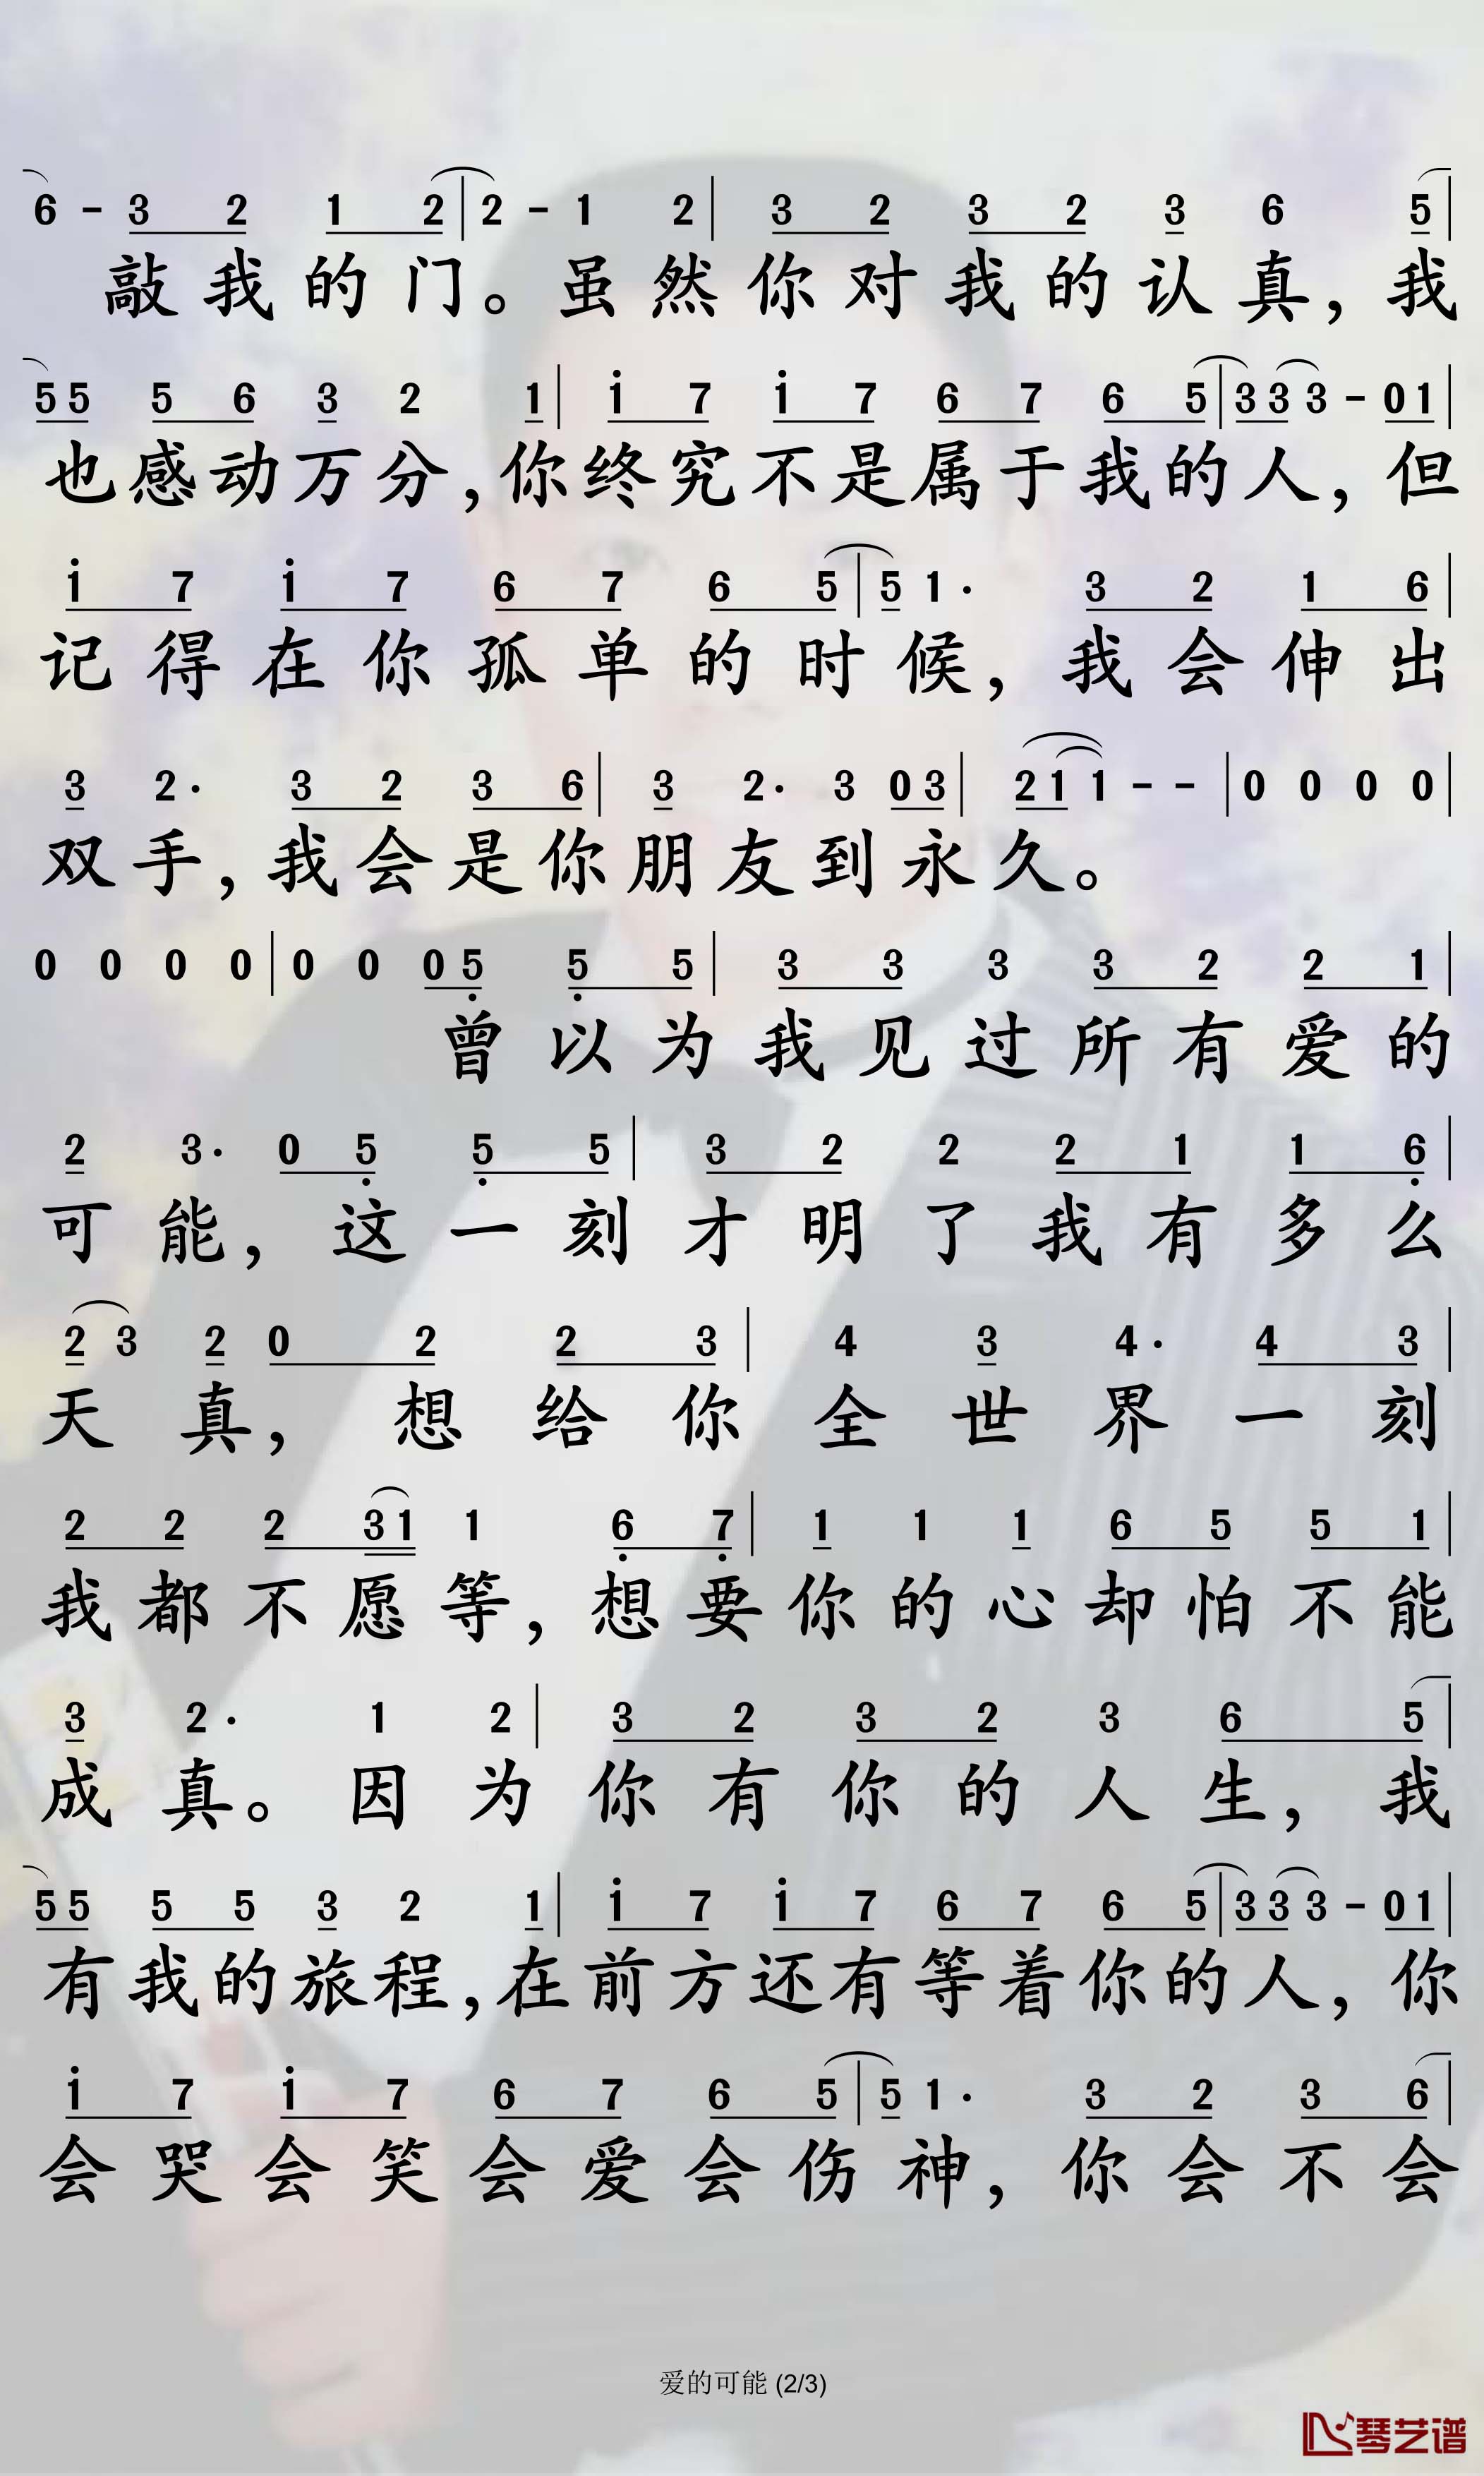 6 - 3 2 1 2 | 2 - 1 2 | 3 2 3 2 3 6 5 |
敲我的门。虽然你对我的认真，我
5 5 5 6 3 2 1 | i 7 i 7 6 7 6 5 | 3 3 3 - 0 1 |
也感动万分，你终究不是属于我的人，但
i 7 i 7 6 7 6 5 | 5 1 · 3 2 1 6 |
记得在你孤单的时候，我会伸出
3 2 · 3 2 3 6 | 3 2 · 3 0 3 | 2 1 1 - - | 0 0 0 0 |
双手，我会是你朋友到永久。
0 0 0 0 | 0 0 0 5 5 5 | 3 3 3 3 2 2 1 |
曾以为我见过所有爱的
2 3 · 0 5 5 5 | 3 2 2 2 1 1 6 |
可能，这一刻才明了我有多么
2 3 2 0 2 2 3 | 4 3 4 · 4 3 |
天真，想给你全世界一刻
2 2 2 3 1 1 6 7 | 1 1 1 6 5 5 1 |
我都不愿等，想要你的心却怕不能
3 2 · 1 2 | 3 2 3 2 3 6 5 |
成真。因为你有你的人生，我
5 5 5 5 3 2 1 | i 7 i 7 6 7 6 5 | 3 3 3 - 0 1 |
有我的旅程，在前方还有等着你的人，你
i 7 i 7 6 7 6 5 | 5 1 · 3 2 3 6 |
会哭会笑会爱会伤神，你会不会
爱的可能 (2/3)
琴艺谱